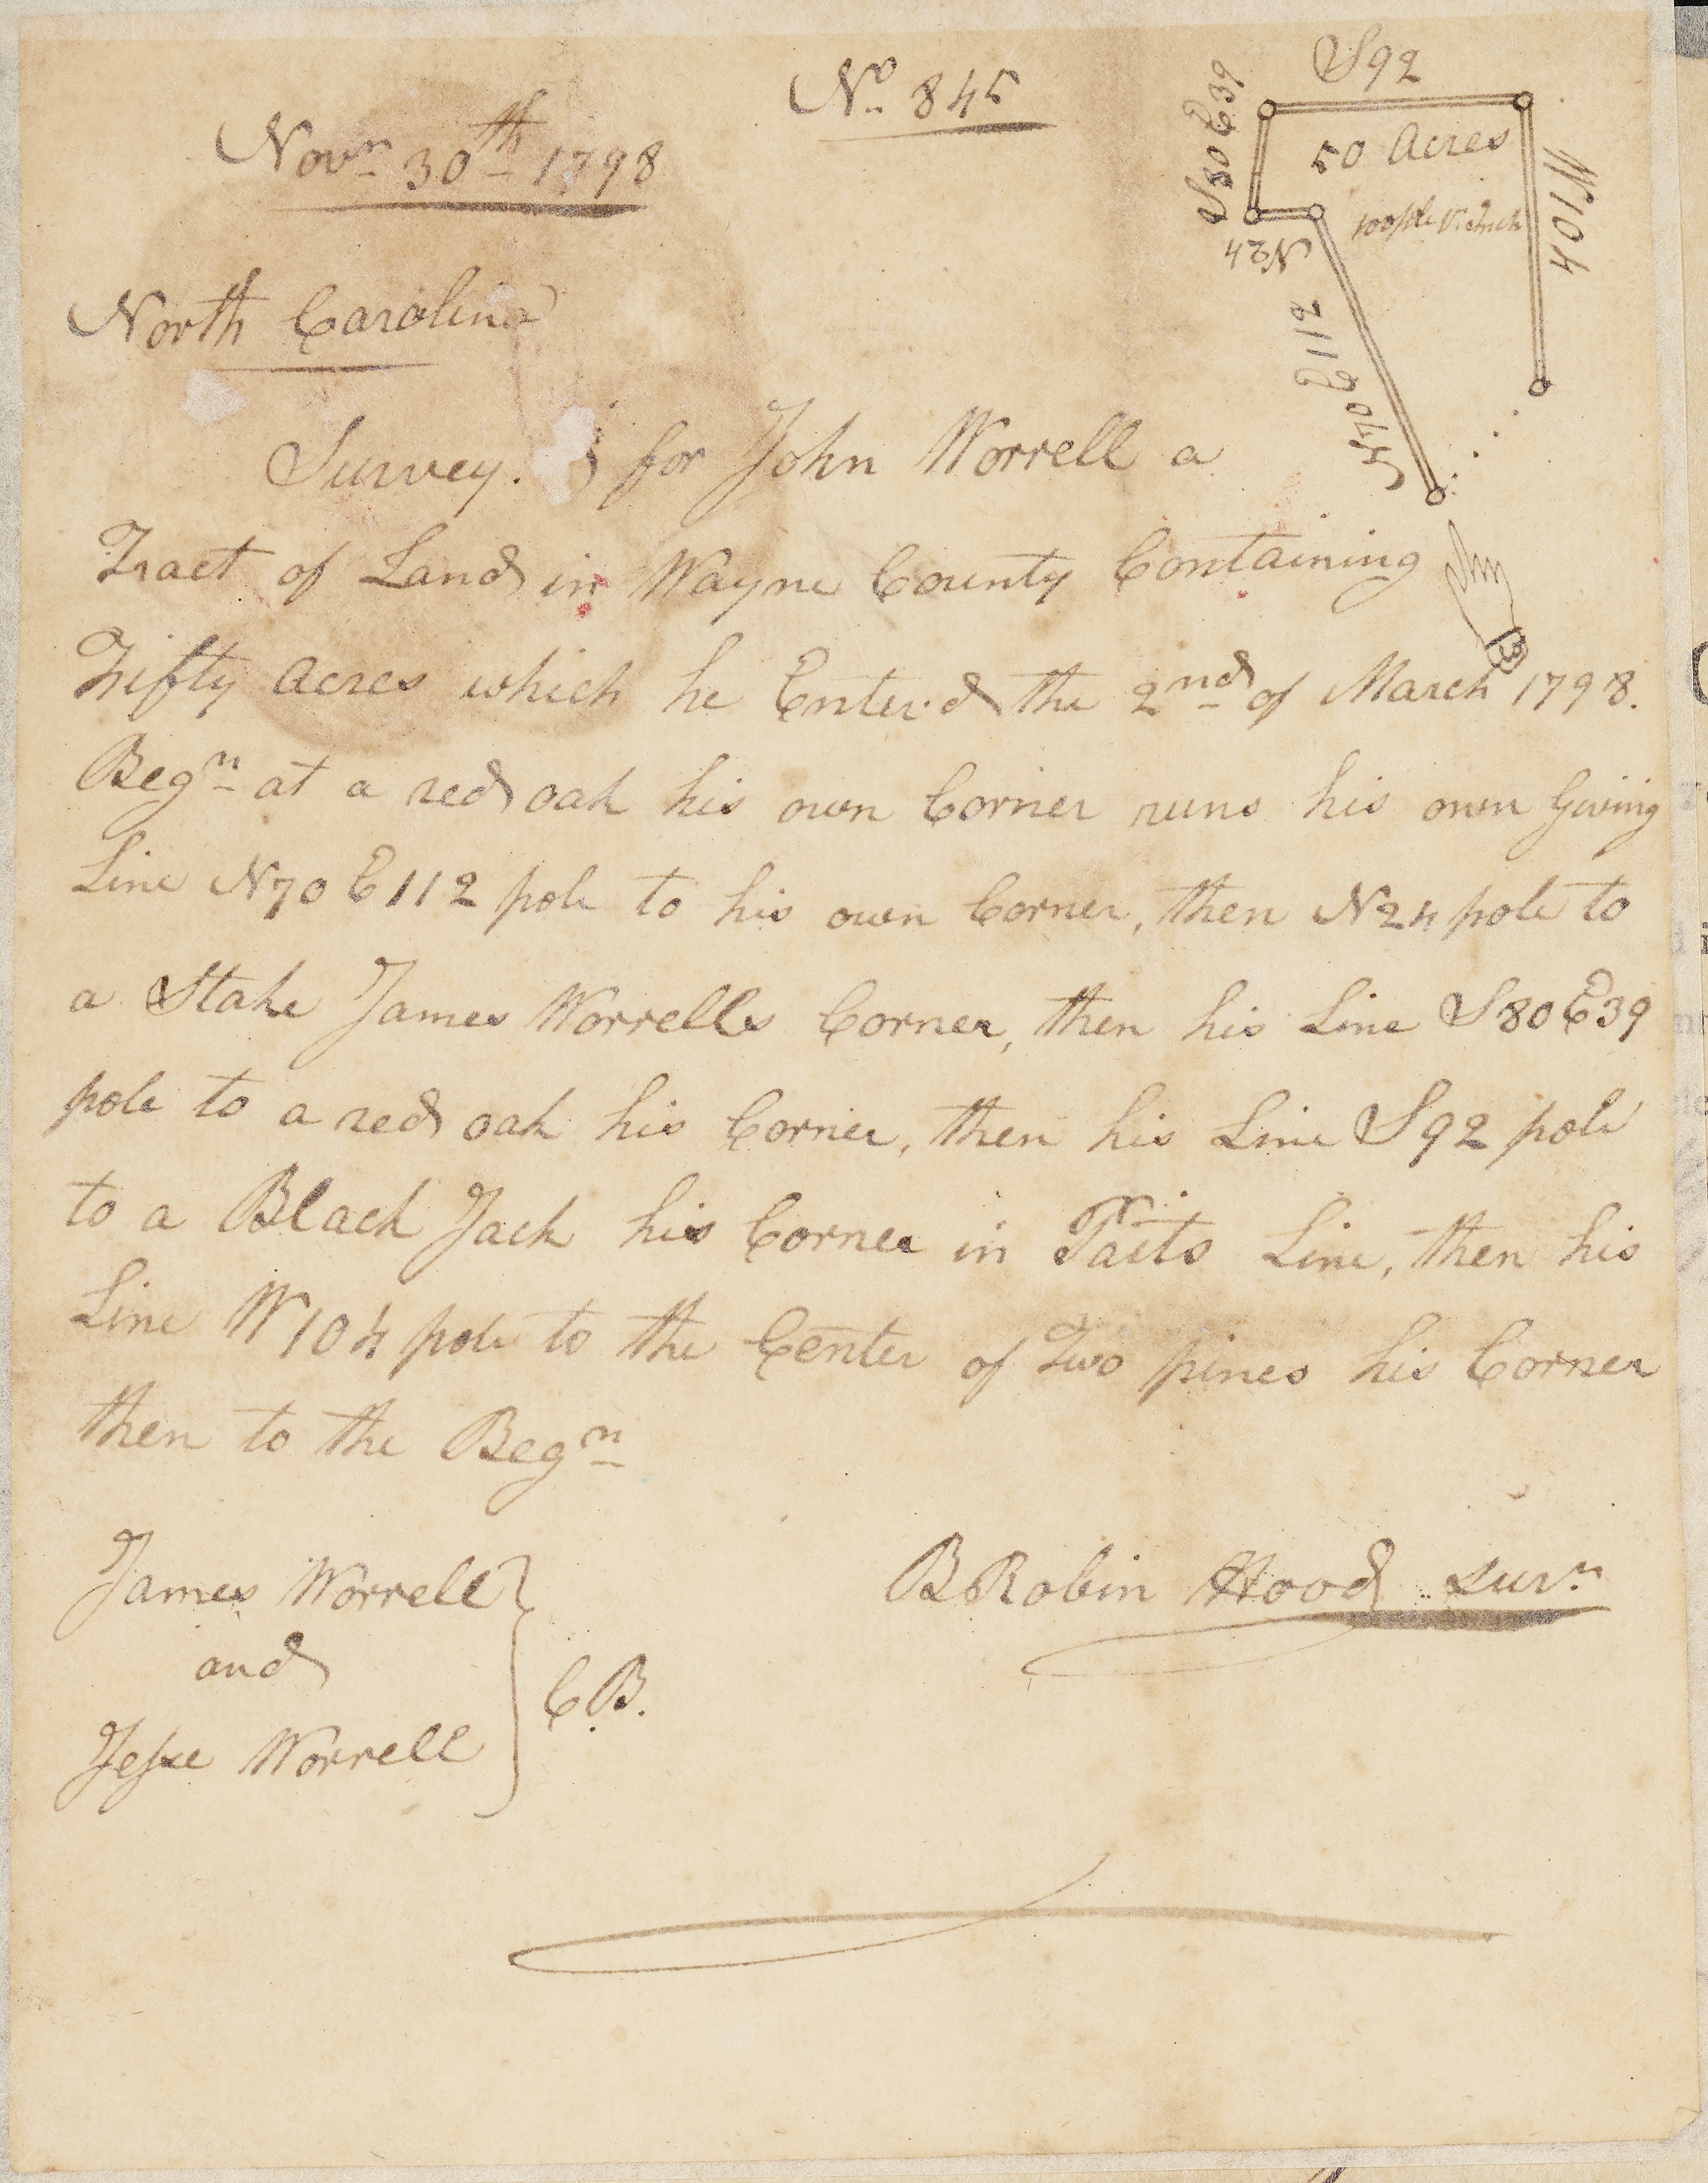 No 845
Novn 30th 1798
S92
S80E39
50 Acres
W104
N24
N70E112
North Carolina
Survey.d for John Worrell a
Tract of Land in Wayne County Containing
Fifty Acres which he Enter.d the 2nd of March 1798.
Begn at a red oak his own Corner runs his own Giving
Line N70E112 pole to his own Corner, then N24 pole to
a Stake James Worrells Corner, then his Line S80E39
pole to a red oak his Corner, then his Line S92 pole
to a Black Jack his Corner in Taits Line, then his
Line W104 pole to the Center of Two pines his Corner
then to the Begn
James Worrell
and
Jesse Worrell
C.B.
B Robin Hood surn